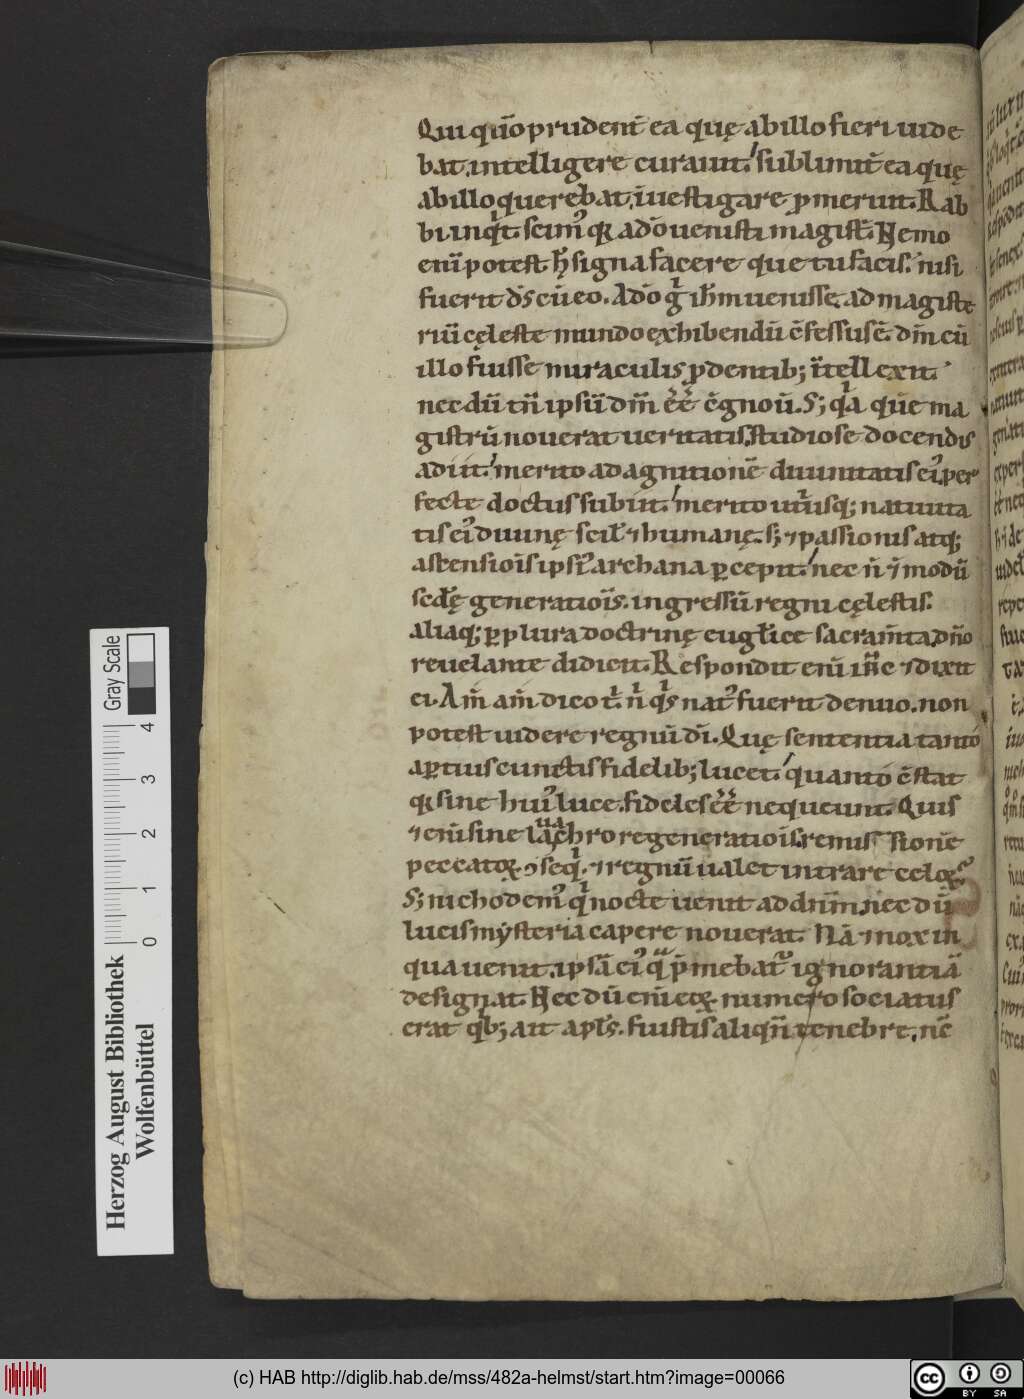 Qui quō prudent̄ ea quę abillo fieri uide
bat. intelligere curauit. sublimit̄ ea quę
abillo querebat. īuestigare ꝓmeruit. Rab
bi inqͥt. scimꝰ qꝛ adō uenisti magist̄. Nemo
enī potest h̄ signa facere que tu facis. nisi
fuerit ds̄ cū eo. Adō gͥ ih̄m uenisse. ad magiste
riū cęleste mundo exhibendū c̄fessus ē. dm̄ cū
illo fuisse miraculis ꝓdentib; ītellexit.
nec dū tn̄ ipsū dm̄ ēē c̄gnoū. S; qͥa que ma
gistrū nouerat ueritatis. studiose docendis
adiit. merito ad agnitionē diuinitatis eiꝰ. per
fecte doctus subiit. merito utͥusq; natiuita
tis eiꝰ diuinę scil̄ ⁊ humanę. s; ⁊ passionis atq;
ascensiōis ipsiꝰ archana ꝑcepit. nec n̄ ⁊ modū
scd̄ę generatiōis. ingressū regni cęlestis.
aliaq; ꝑplura doctrinę eugl̄ice sacram̄ta. dn̄o
reuelante didicit. Respondit enī ih̄c ⁊ dixit
ei. Am̄ am̄ dico t̄. n̄ qͥs natꝰ fuerit denuo. non
potest uidere regnū dī. Quę sententia tanto
aꝑtius cunctis fidelib; lucet. quanto c̄stat
qꝛ sine huiꝰ luce. fideles ēē nequeunt. Quis
⁊enī sine lauachro regeneratiōis. remissionē
peccatoꝝ ɔseqͥ. ⁊ regnū ualet intrare celoꝝ.
S; nichodemꝰ qͥ nocte uenit ad dn̄m. nec dū
lucis mẏsteria capere nouerat. Nā ⁊ nox in
qua uenit. ipsā eiꝰ qͣ p̄mebatᷣ ignorantiā
designat. Nec dū enī eoꝝ numero sociatus
erat qͥb; ait apl̄s. fiustis aliqn̄ tenebre. nē
Gray Scale
0 1 2 3 4
Herzog August Bibliothek
Wolfenbüttel
(c) HAB http://diglib.hab.de/mss/482a-helmst/start.htm?image=00066
cc BY SA